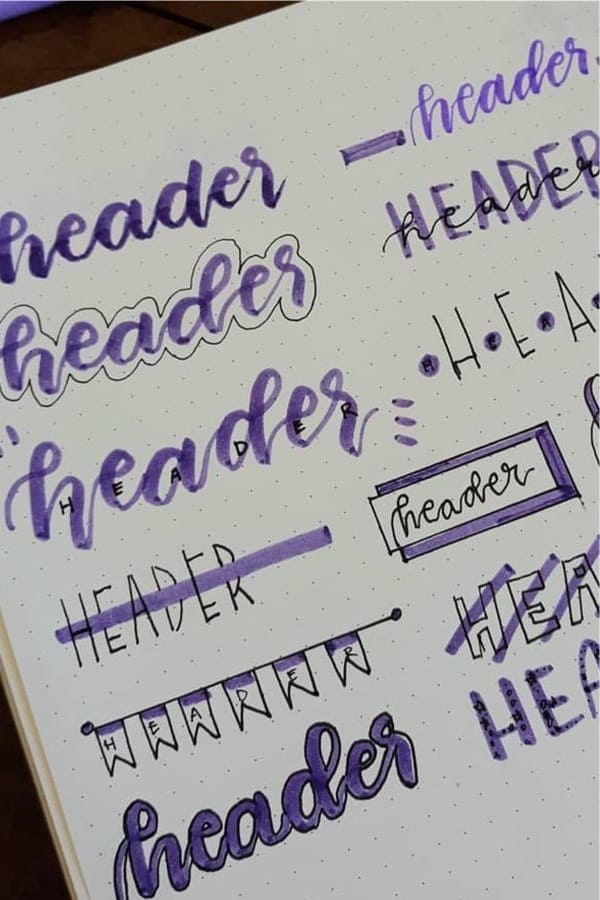 header
header
header
HEADER
HEADER
HEADER
header
header
HEADER
header
H E A
H E A
header
HEA
HEA